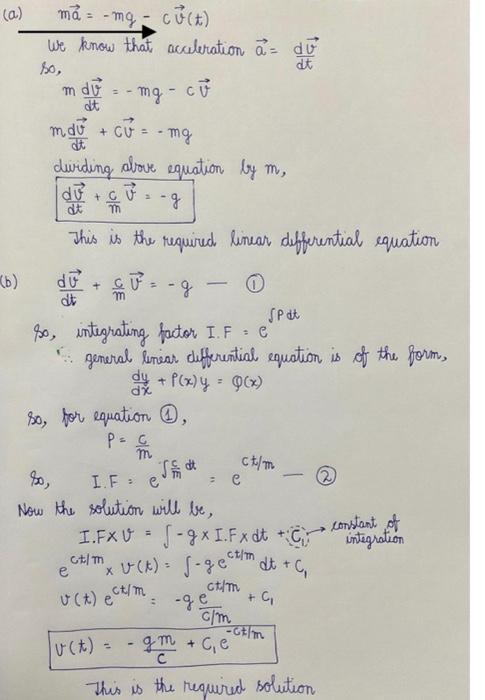 (a) ma⃗ = -mg - cv⃗(t)
We know that acceleration a⃗ = dv⃗/dt
So,
m dv⃗/dt = -mg - cv⃗
m dv⃗/dt + cv⃗ = -mg
dividing above equation by m,
dv⃗/dt + c/m v⃗ = -g
This is the required linear differential equation
(b) dv⃗/dt + c/m v⃗ = -g — ①
So, integrating factor I.F = e^∫Pdt
∵ general linear differential equation is of the form,
dy/dx + P(x)y = Q(x)
So, for equation ①,
P = c/m
So, I.F = e^∫c/m dt = e^ct/m — ②
Now the solution will be,
I.F×v = ∫-g×I.F×dt + C₁ → constant of integration
e^ct/m × v(t) = ∫-ge^ct/m dt + C₁
v(t) e^ct/m = -g e^ct/m / c/m + C₁
v(t) = - gm/c + C₁e^-ct/m
This is the required solution